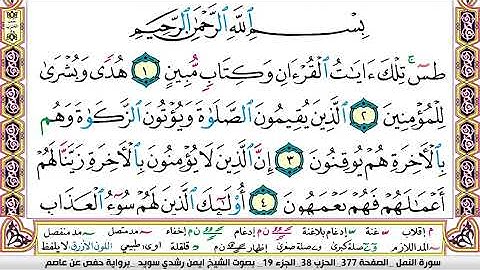 بِسْمِ اللَّهِ الرَّحْمَٰنِ الرَّحِيمِ
طسٓ ۚ تِلْكَ ءَايَٰتُ الْقُرْءَانِ وَكِتَابٍ مُّبِينٍ ١ هُدًى وَبُشْرَىٰ
لِلْمُؤْمِنِينَ ٢ الَّذِينَ يُقِيمُونَ الصَّلَوٰةَ وَيُؤْتُونَ الزَّكَوٰةَ وَهُم
بِالْأَخِرَةِ هُمْ يُوقِنُونَ ٣ إِنَّ الَّذِينَ لَا يُؤْمِنُونَ بِالْأَخِرَةِ زَيَّنَّا لَهُمْ
أَعْمَٰلَهُمْ فَهُمْ يَعْمَهُونَ ٤ أُوْلَٰٓئِكَ الَّذِينَ لَهُمْ سُوٓءُ الْعَذَابِ
م إقلاب غنة إدغام بلاغنة إدغام ن م إخفاء مد متصل مد منفصل
المد اللازم صلة كبرى صلة صغرى إظهار ن م قلقلة اوى طبيعي اللون الأزرق لا يلفظ
سورة النمل _ الصفحة 377_ الحزب 38_ الجزء 19_ بصوت الشيخ ايمن رشدي سويد _برواية حفص عن عاصم